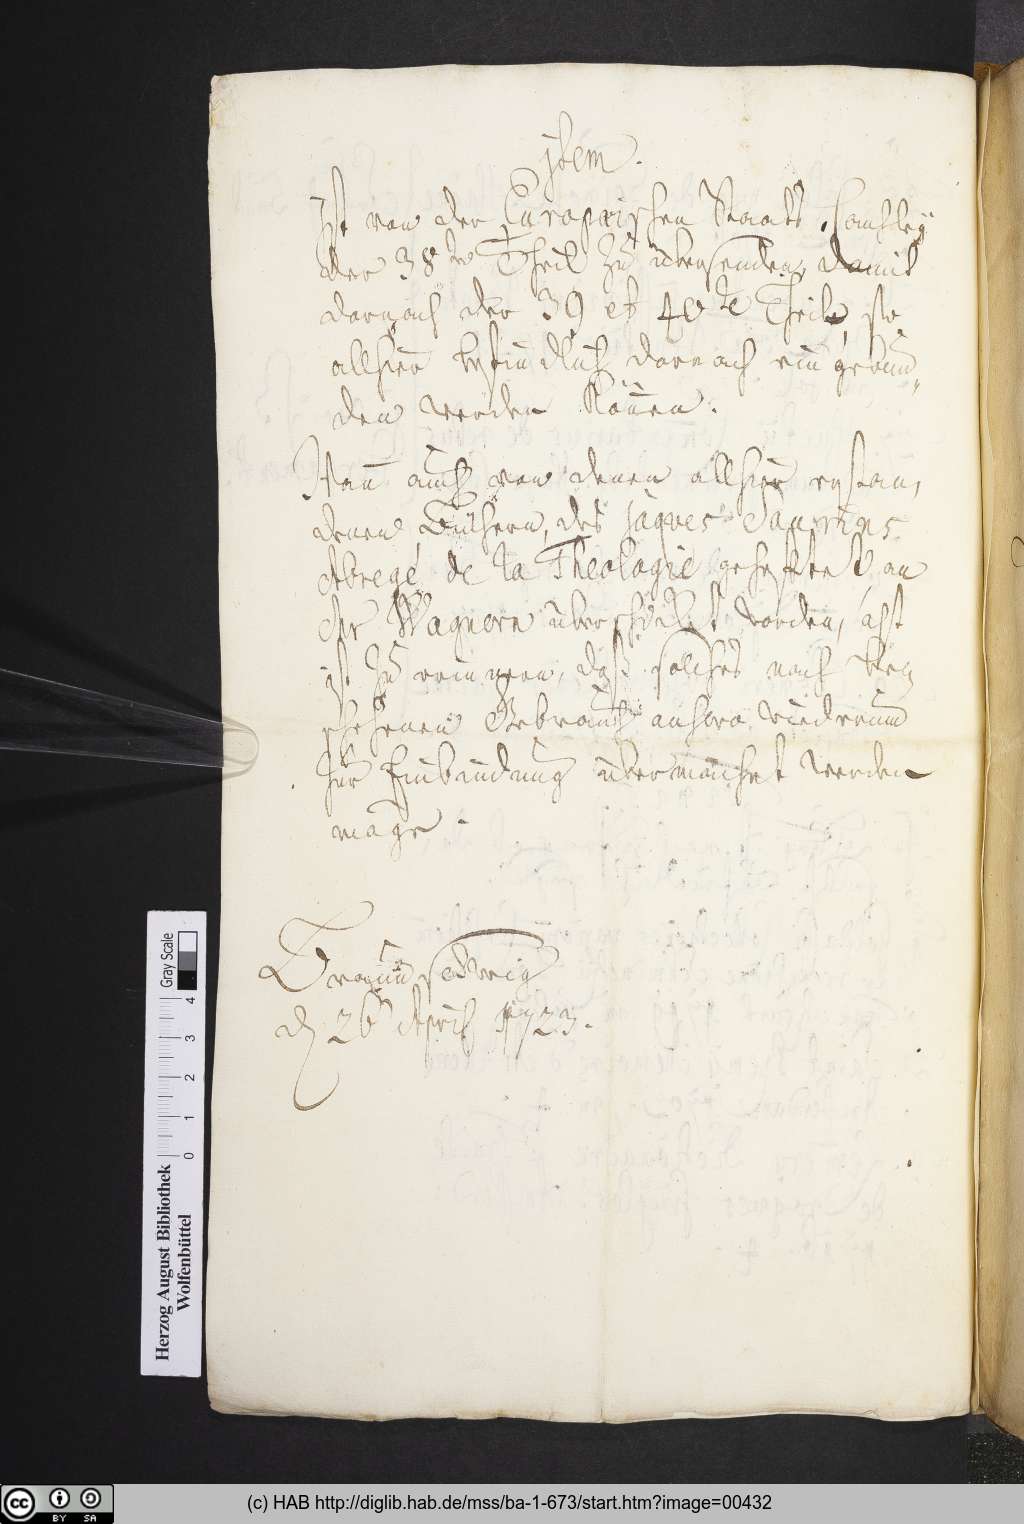 jtem.
Ist von der Europäischen Staats Cantzley
der 38te Theil zu übersenden, damit
darnach der 39 et 40te Theile, so
allhier befindlich darnach ein gebun„
den werden können.
Wann auch von denen allhier
denen Büchern, des Jaques Saurins
Abregé de la Theologie geheftet an
die Wagnern überschickt worden,
ist zu erinnern, daß solches nach
schehenen Gebrauch anhero wiederum
zur Einbindung übermachet werden
möge.
Braunschweig
d 26 April 1723.
Herzog August Bibliothek
Wolfenbüttel
Gray Scale
0 1 2 3 4
(c) HAB http://diglib.hab.de/mss/ba-1-673/start.htm?image=00432
cc BY SA